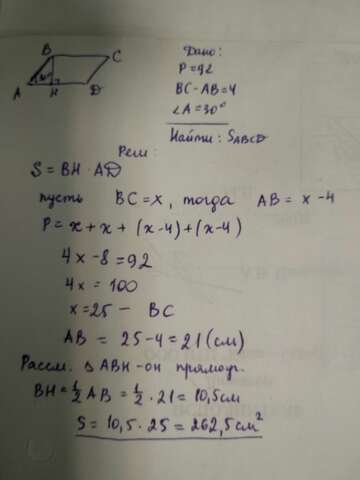 B C
A H D
30°
Дано:
P=92
BC-AB=4
∠A=30°
Найти: S ABCD
Реш:
S=BH·AD
пусть BC=x, тогда AB=x-4
P=x+x+(x-4)+(x-4)
4x-8=92
4x=100
x=25 - BC
AB=25-4=21(см)
Рассм. △ABH-он прямоуг.
BH=1/2 AB=1/2·21=10,5см
S=10,5·25=262,5см²